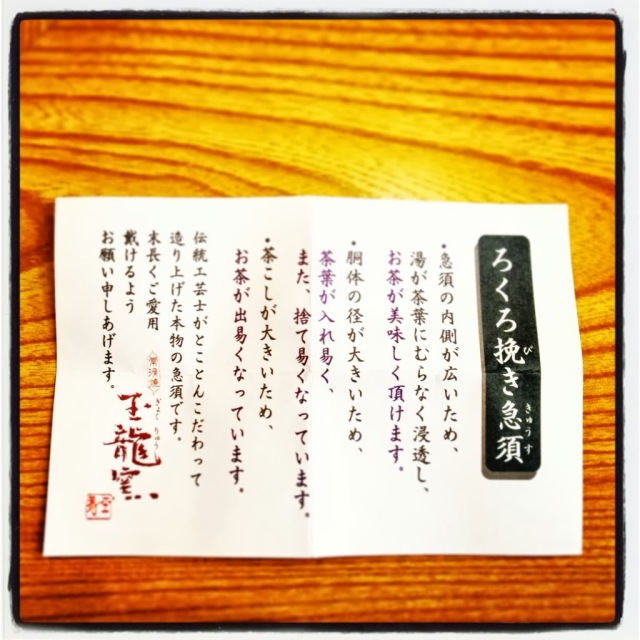 ろくろ挽き急須
び
きゅうす
・急須の内側が広いため、
湯が茶葉にむらなく浸透し、
お茶が美味しく頂けます。
・胴体の径が大きいため、
茶葉が入れ易く、
また、捨て易くなっています。
・茶こしが大きいため、
お茶が出易くなっています。
伝統工芸士がとことんこだわって
造り上げた本物の急須です。
末長くご愛用
戴けるよう
お願い申しあげます。
常滑焼
玉龍窯
ぎょくりゅう